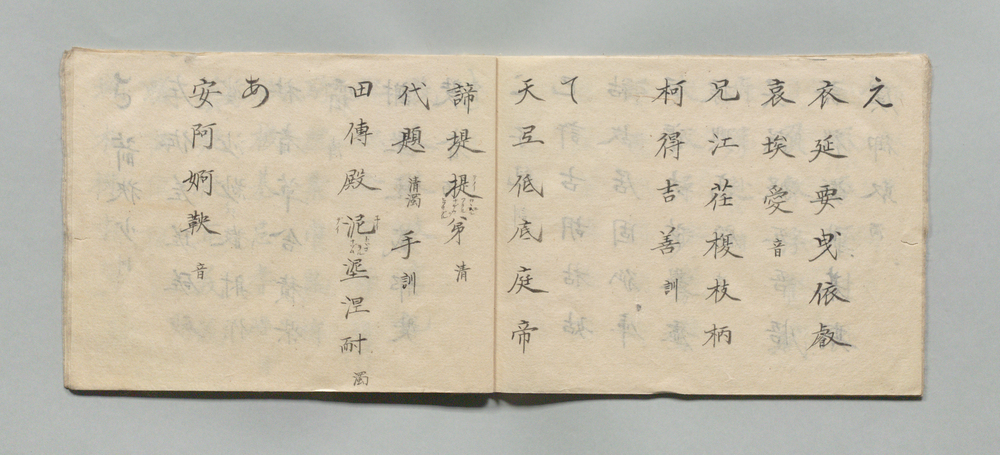 え
衣延要曳依叡
哀埃愛音
兄江荏榎枝柄
柯得吉善訓
て
天弖低底庭帝
諦堤提第清
代題清濁手訓
田傳殿泥埿涅耐濁
あ
安阿婀鞅音